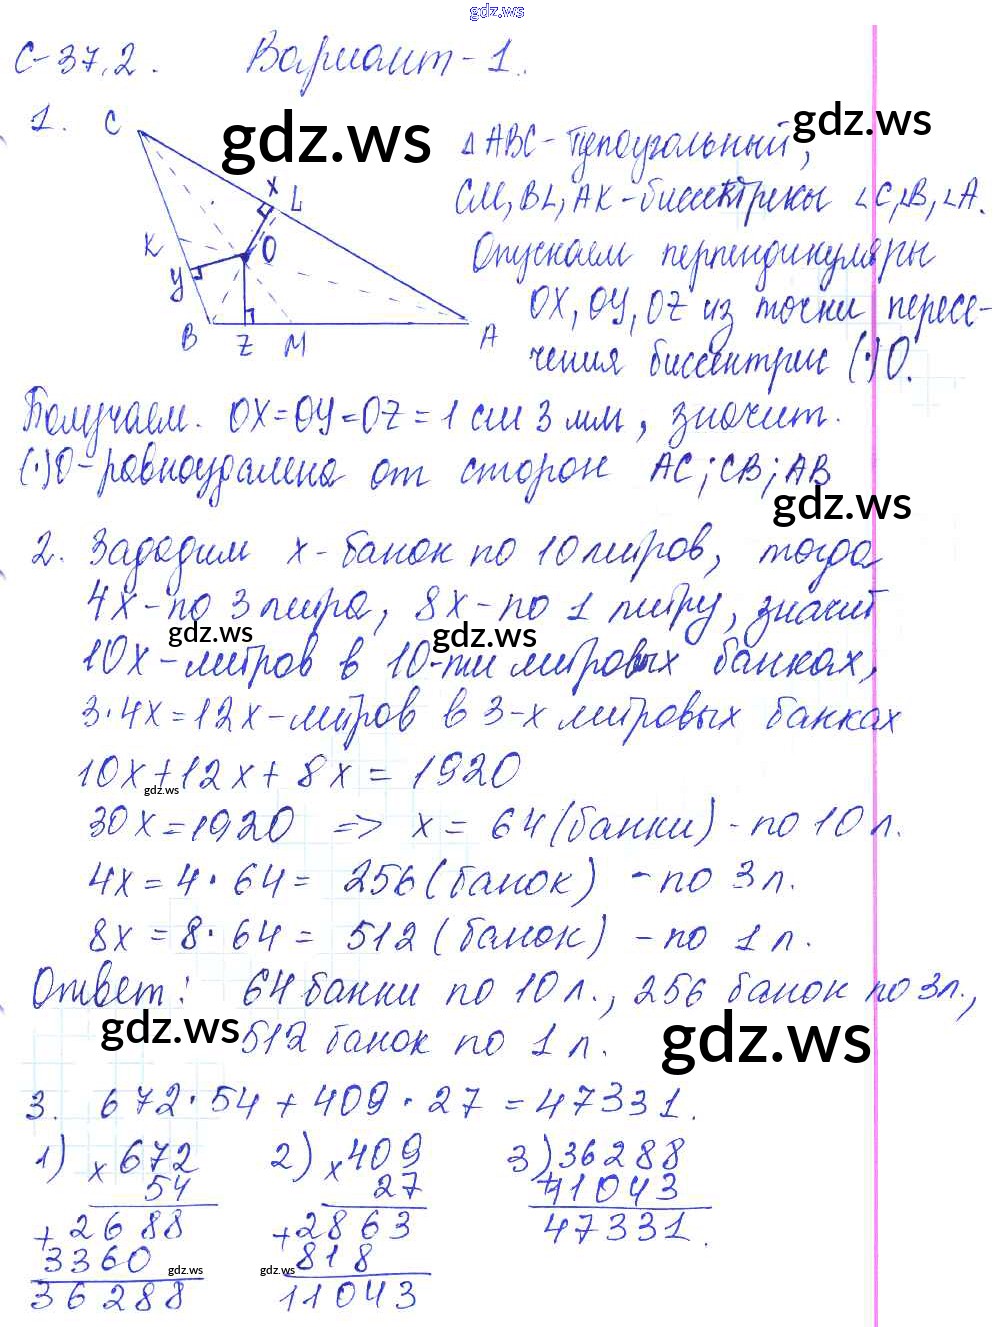 gdz.ws
С-37.2. Вариант-1.
1. C
gdz.ws
gdz.ws
X L
K O
У
B Z M A
△ABC-тупоугольный,
CM, BL, AK-биссектрисы ∠C,∠B,∠A.
Опускаем перпендикуляры
OX, OУ, OZ из точки пересе-
чения биссектрис (·)O.
Получаем. OX=OУ=OZ=1 см 3 мм, значит.
(·)O-равноудалена от сторон AC;CB;AB
gdz.ws
2. Зададим x-банок по 10 литров, тогда
4x-по 3 литра, 8x-по 1 литру, значит
gdz.ws gdz.ws
10x-литров в 10-ти литровых банках,
3·4x=12x-литров в 3-х литровых банках
10x+12x+8x=1920
gdz.ws
30x=1920 => x= 64(банки)-по 10 л.
4x=4·64= 256(банок) -по 3 л.
8x=8·64= 512(банок) -по 1 л.
Ответ: 64 банки по 10 л., 256 банок по 3л.,
gdz.ws gdz.ws
512 банок по 1 л.
3. 672·54+409·27=47331.
1) ×672 2) ×409 3) 36288
54 27 +11043
+2688 +2863 47331.
3360 818
gdz.ws gdz.ws
36288 11043